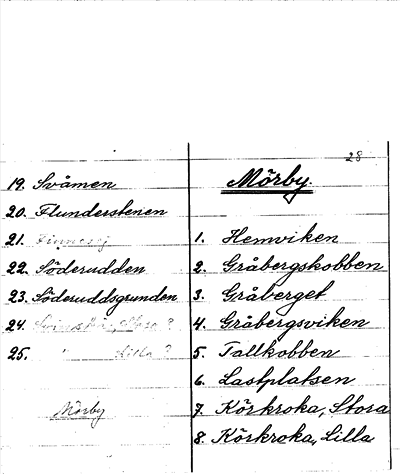 28
19. Svåmen
20. Flunderstenen
21.
22. Söderudden
23. Söderuddsgrunden
24. Stora?
25. " Lilla?
Mörby
Mörby.
1. Hemviken
2. Gråbergskobben
3. Gråberget
4. Gråbergsviken
5. Tallkobben
6. Lastplatsen
7. Körkroka, Stora
8. Körkroka, Lilla